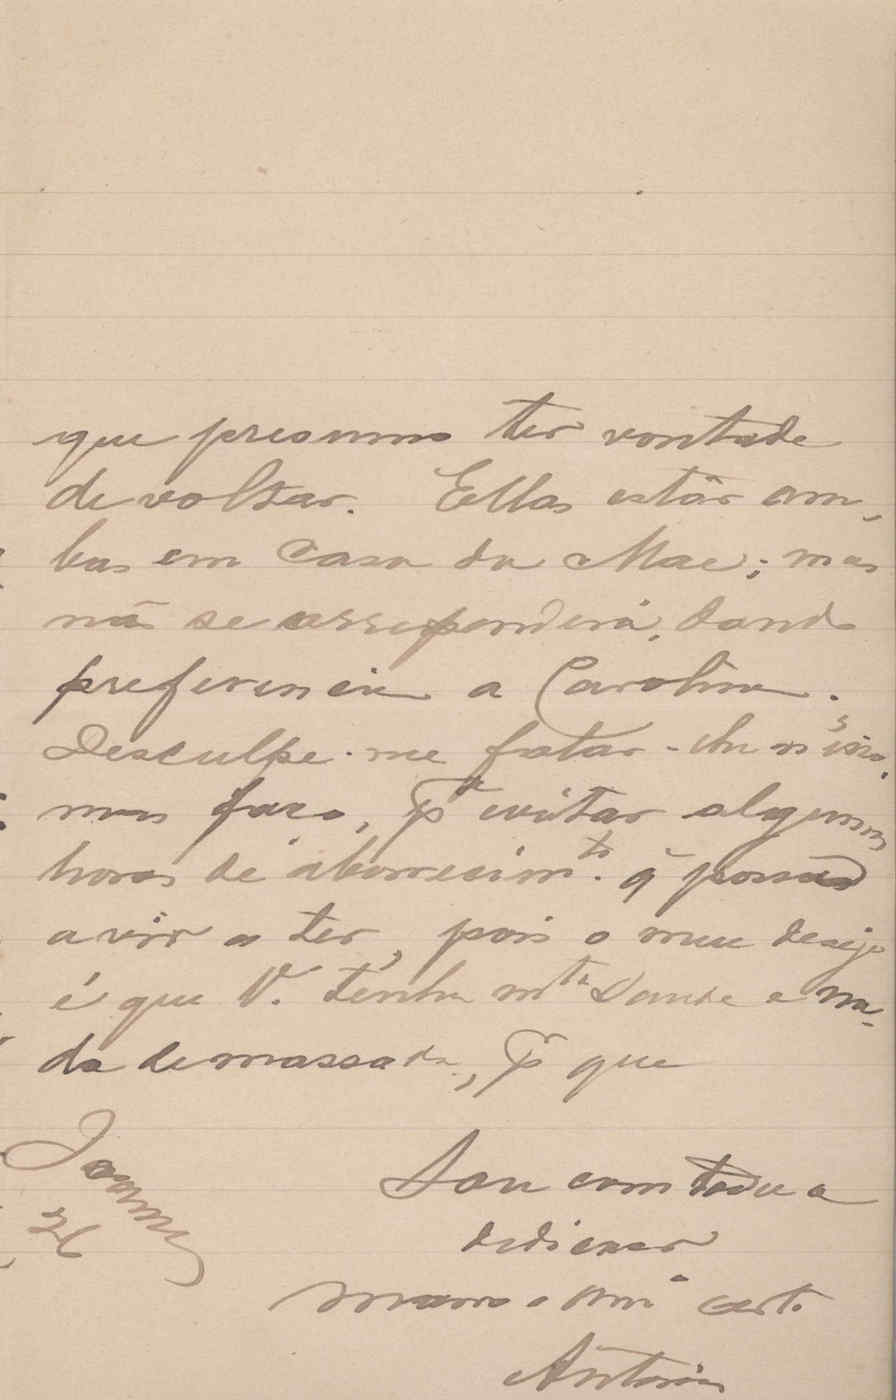 que presumo ter vontade
de voltar. Ellas estão am-
bas em casa da Mae; mas
não se arrependerá, dando
preferencia a Carolina.
Desculpe-me fallar-lhe n'isso,
mas faço, pª evitar algumas
horas de aborrecimto. q̃ possa
a vir a ter, pois o meu desejo
é que V. tenha mta Saude e na-
da de massada, pr que
Sou com toda a
dedicação
mano e amº certo
Antonio
Janeiro
26